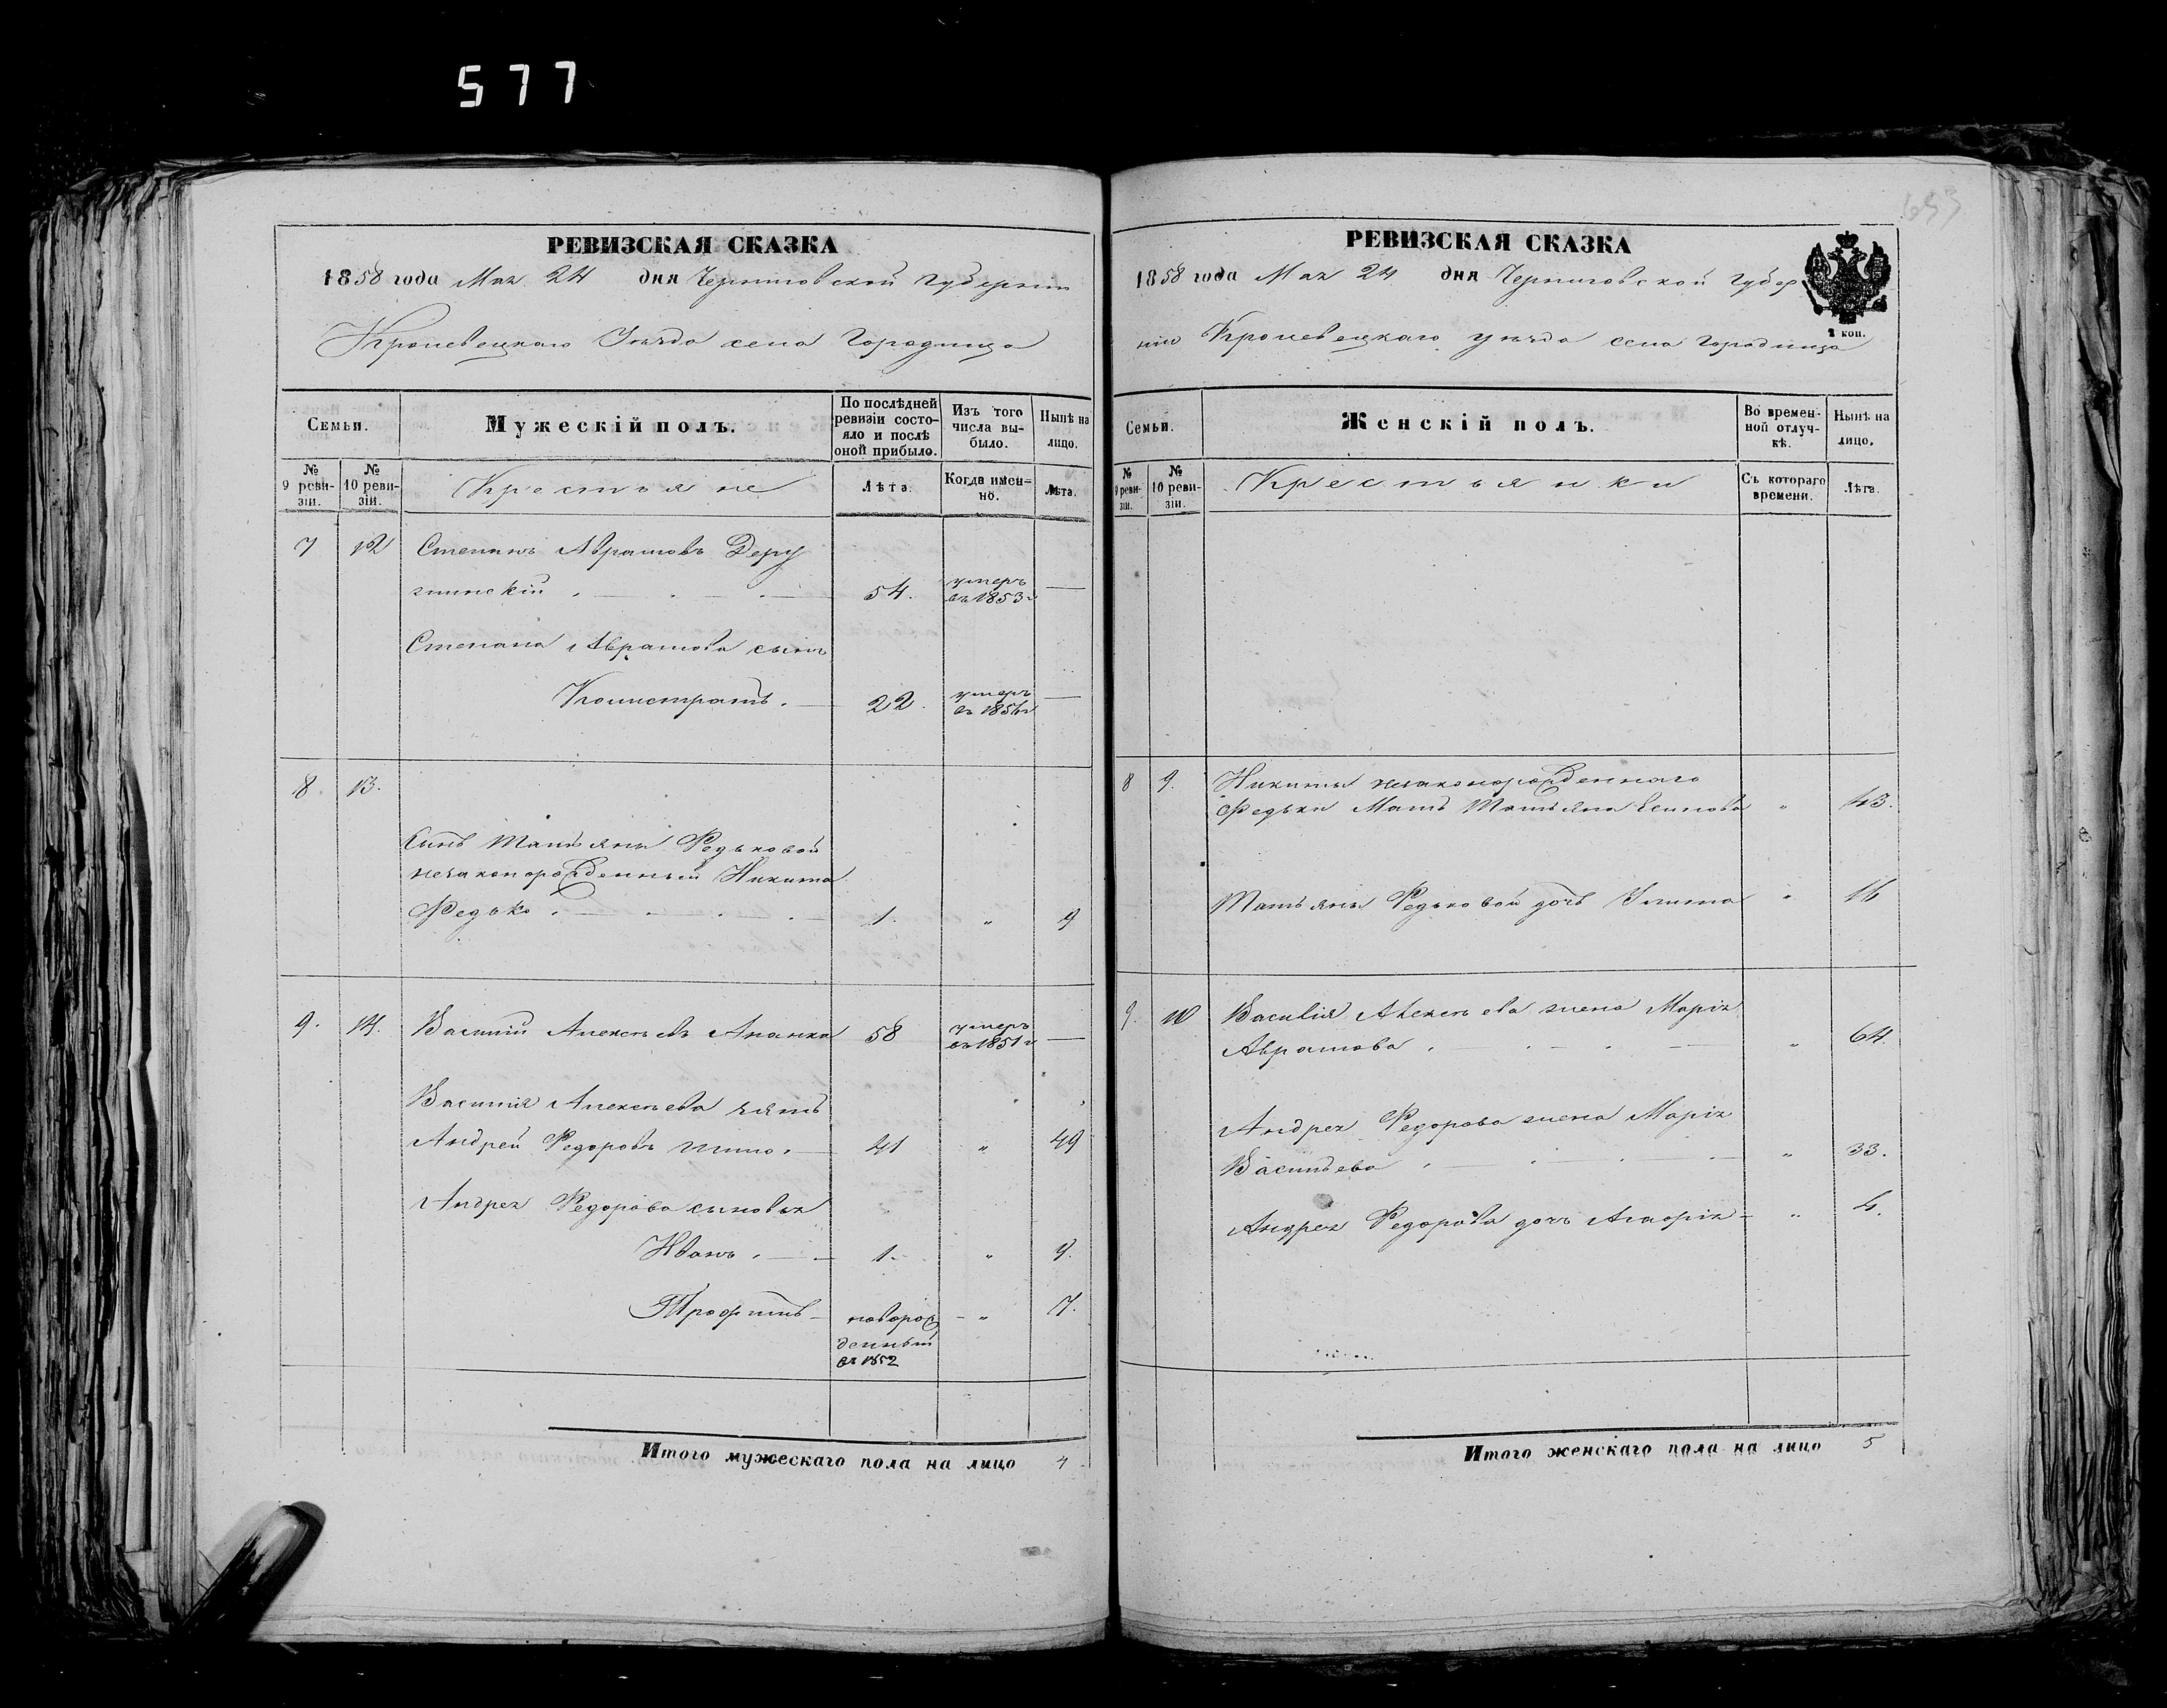 577
653
РЕВИЗСКАЯ СКАЗКА
1858 года Мая 24 дня Черниговской Губерніи
Кролевецкаго Уѣзда села Городища
Семьи.
Мужескій полъ.
По послѣдней ревизіи состояло и послѣ оной прибыло.
Изъ того числа выбыло.
Нынѣ на лицо.
№ 9 ревизіи.
№ 10 ревизіи.
Крестьяне
Лѣта.
Когда именно.
Лѣта.
7 12 Степанъ Аврамовъ Деру
гинскій 54. умеръ въ 1853 г —
Степана Аврамова сынъ
Калистратъ. 22. умеръ въ 185 г —
8 13.
Сынъ Татьяны Федьковой
незаконорожденный Никита
Федько 1. " 9
9. 14. Василій Алексѣевъ Ананка 58 умеръ въ 1851 г —
Василія Алексѣева зять
Андрей Федоровъ 41 " 49
Андрея Федорова сыновья
Иванъ 1. " 9.
Трофимъ новорожденный въ 1852 " 7.
Итого мужескаго пола на лицо 4
РЕВИЗСКАЯ СКАЗКА
1858 года Мая 24 дня Черниговской Губер
ніи Кролевецкаго уѣзда села Городища
2 коп.
Семьи.
Женскій полъ.
Во временной отлучкѣ.
Нынѣ на лицо.
№ 9 ревизіи.
№ 10 ревизіи.
Крестьянки
Съ котораго времени.
Лѣта.
8 9. Никиты незаконорожденнаго
Федьки Мать Татьяна Есипова " 43.
Татьяны Федьковой дочь Улита " 16
9. 10 Василія Алексѣева жена Марія
Аврамова " 64.
Андрея Федорова жена Марія
Васильева " 33.
Андрея Федорова дочь Агафія " 4.
Итого женскаго пола на лицо 5